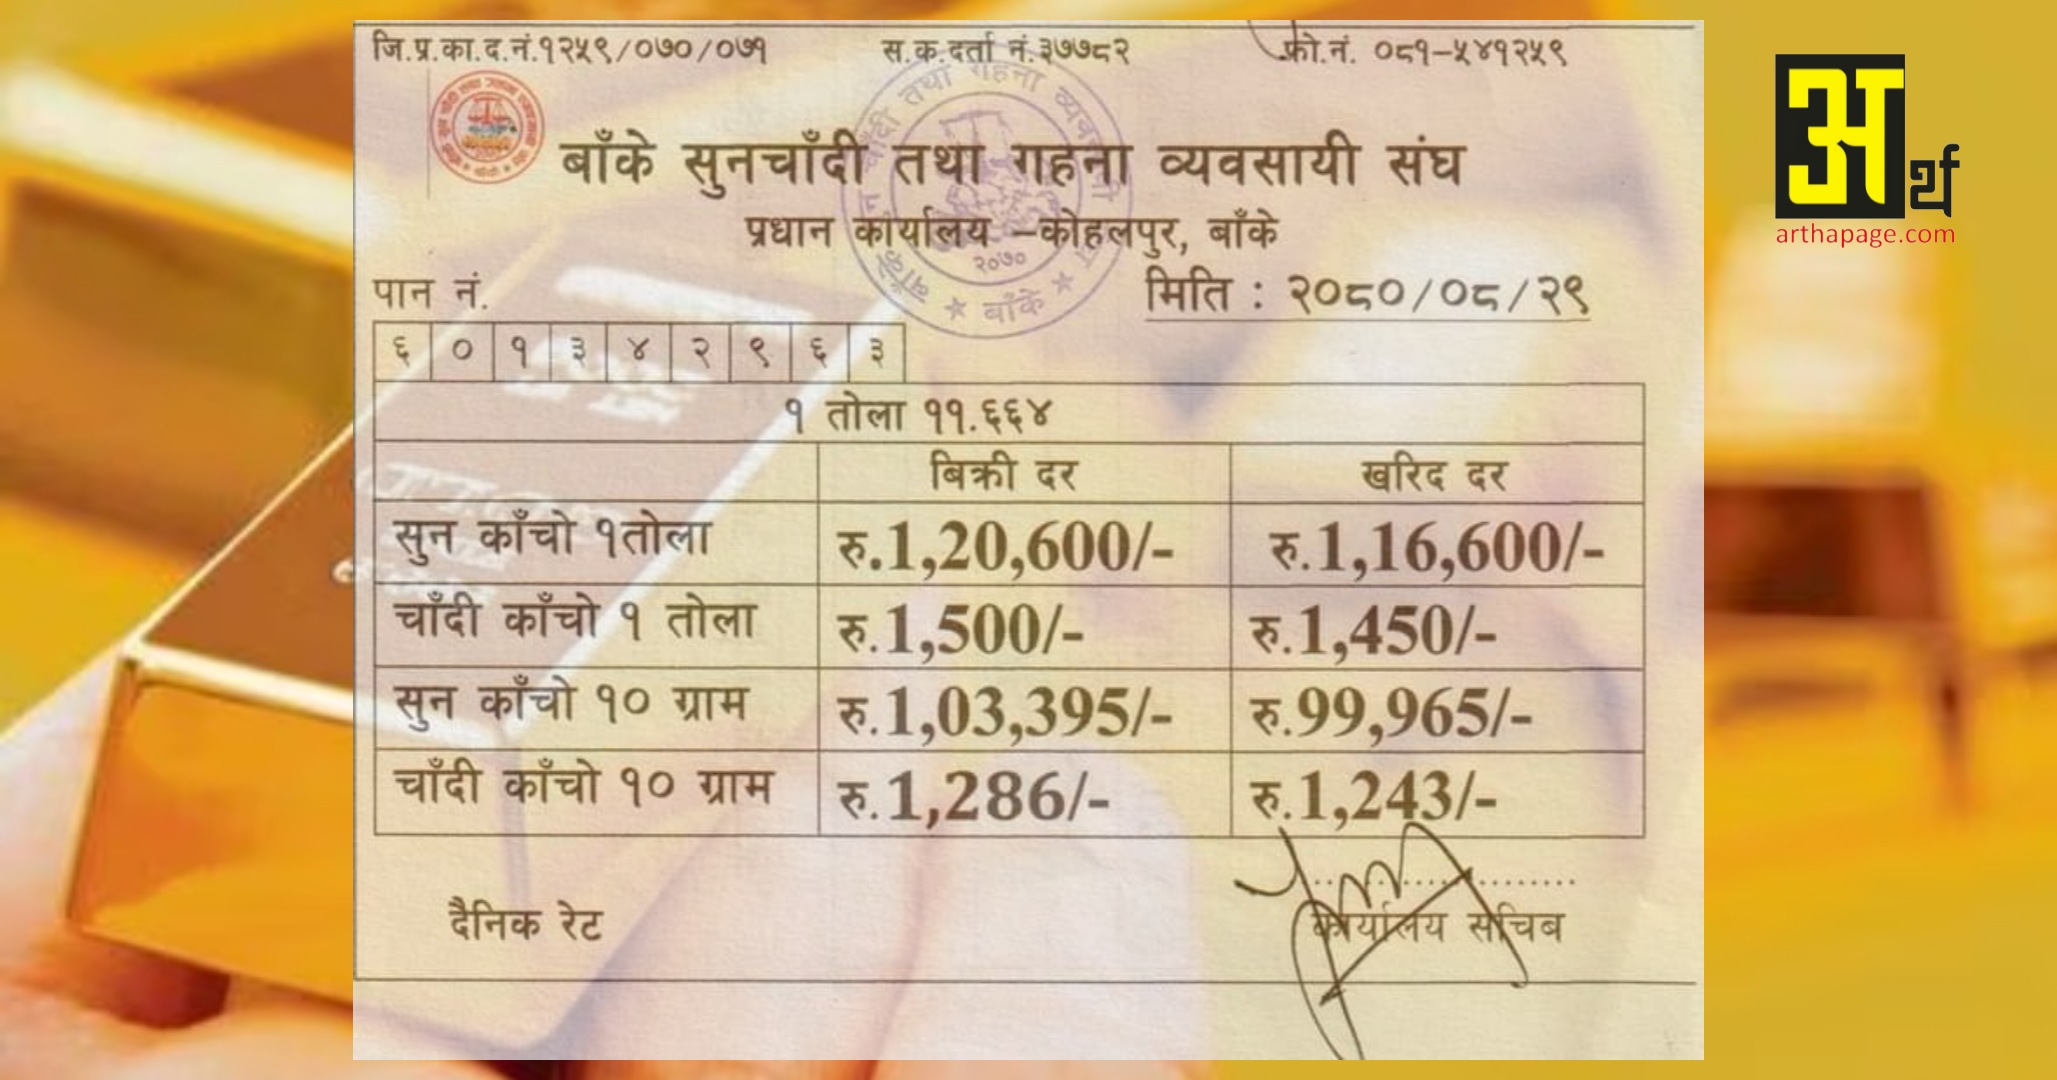 जि.प्र.का.द.नं.१२५९/०७०/०७१ स.क.दर्ता नं.३७७८२ फो.नं. ०८१-५४१२५९
बाँके सुनचाँदी तथा गहना व्यवसायी संघ
प्रधान कार्यालय -कोहलपुर, बाँके
२०७०
बाँके
पान नं. मिति : २०८०/०८/२९
६ ० १ ३ ४ २ ९ ६ ३
१ तोला ११.६६४
बिक्री दर खरिद दर
सुन काँचो १तोला रु.1,20,600/- रु.1,16,600/-
चाँदी काँचो १ तोला रु.1,500/- रु.1,450/-
सुन काँचो १० ग्राम रु.1,03,395/- रु.99,965/-
चाँदी काँचो १० ग्राम रु.1,286/- रु.1,243/-
दैनिक रेट कार्यालय सचिब
अर्थ
arthapage.com